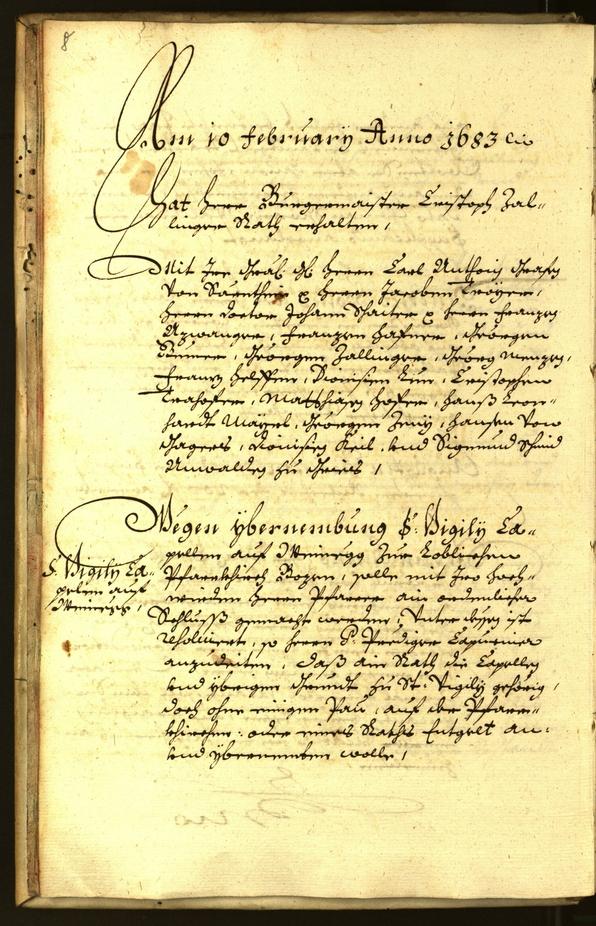 8
Am 10 february Anno 1683
Hat herr Burgermaister Cristoph Zal-
linger Rath erhalten,
Mit Ire Gräf. herrn Carl Anthoni Grafen
von herrn Jacoben Tröyer,
herrn Doctor Johann Schaiter herrn franzen
Azwanger, franzen hafner, Georgen
Georgen Zallinger, Georg
franz Dionisien Cristophen
Matthiasen hofer, hanß Leon-
hardt Mayrl, Georgen Jenny, hansen von
Jagers, Dionisien Keil, und Sigmund Schmid
Anwalden zu Gries,
Wegen ybernembung S: Vigily Ca-
pellen auf Weinegg zur Löblichen
Pfarrkhirch Bozen, solle mit Iro hoch-
würden herrn Pfarrer ain ordenlicher
Schlusß gemacht werden, Unter ist
resolviert, so herrn P: Prediger Capuciner
anzudeiten, daß ain Rath die Capellen
und ybrigen Grundt zu St: Vigily gehörig,
doch ohne einigen Pau, auf der Pfarr-
khirchen: oder eines Raths Entgelt an:
und ybernemben wolle,
S: Vigily Ca-
pelen auf
Weinegg,